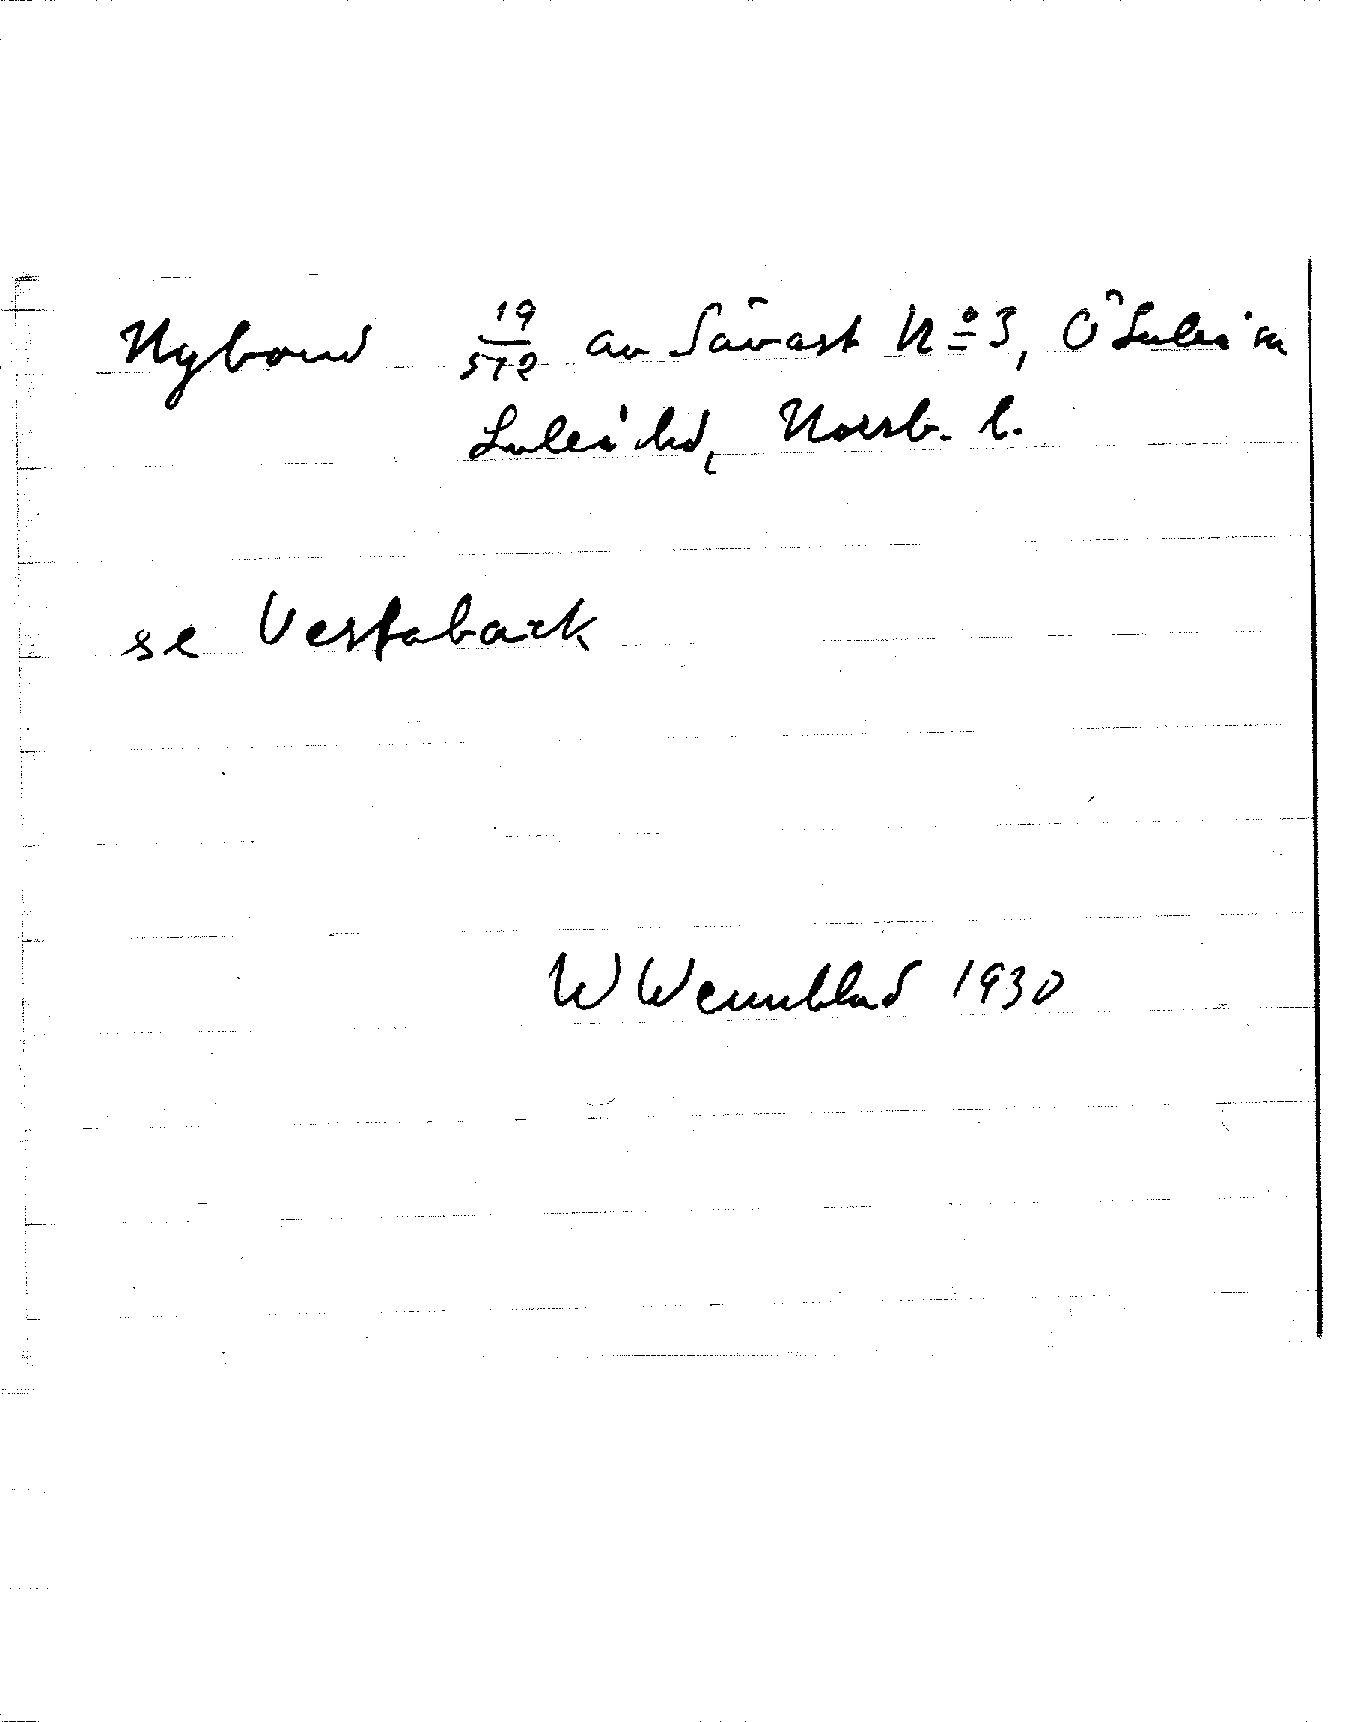 Nybond 19/512 av Sävast No 3, Ö Luleå sn
Luleå hd, Norrb. l.
se Vestabäck
W Wennblad 1930